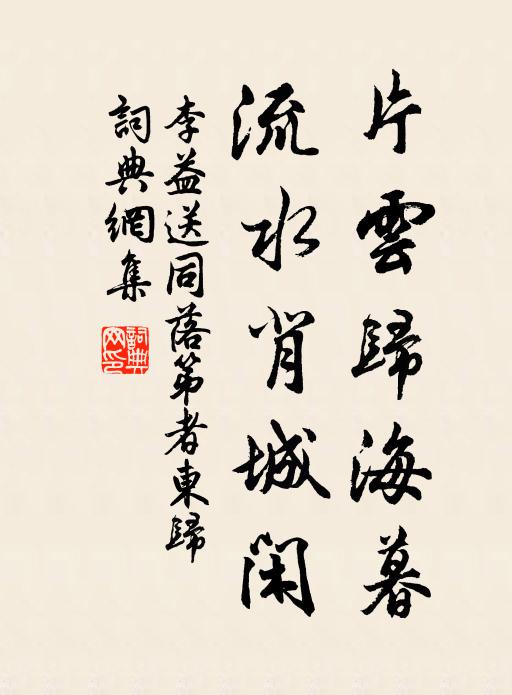 片雲歸海暮
流水背城閑
李益送同落第者東歸
詞典網集
詞典網印